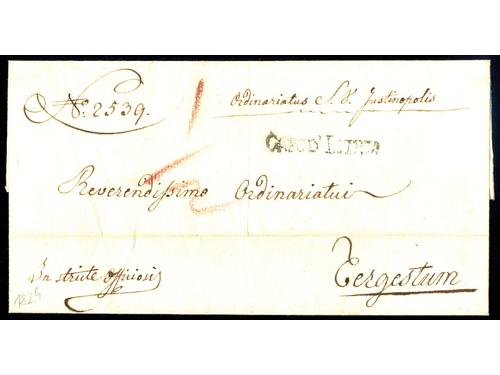 No: 2539.
Ordinariatus S. V. Justinopolis
CAPOD' ISTRIA
Reverendissimo Ordinariatui
In stricte officiosis
Tergestum
1824